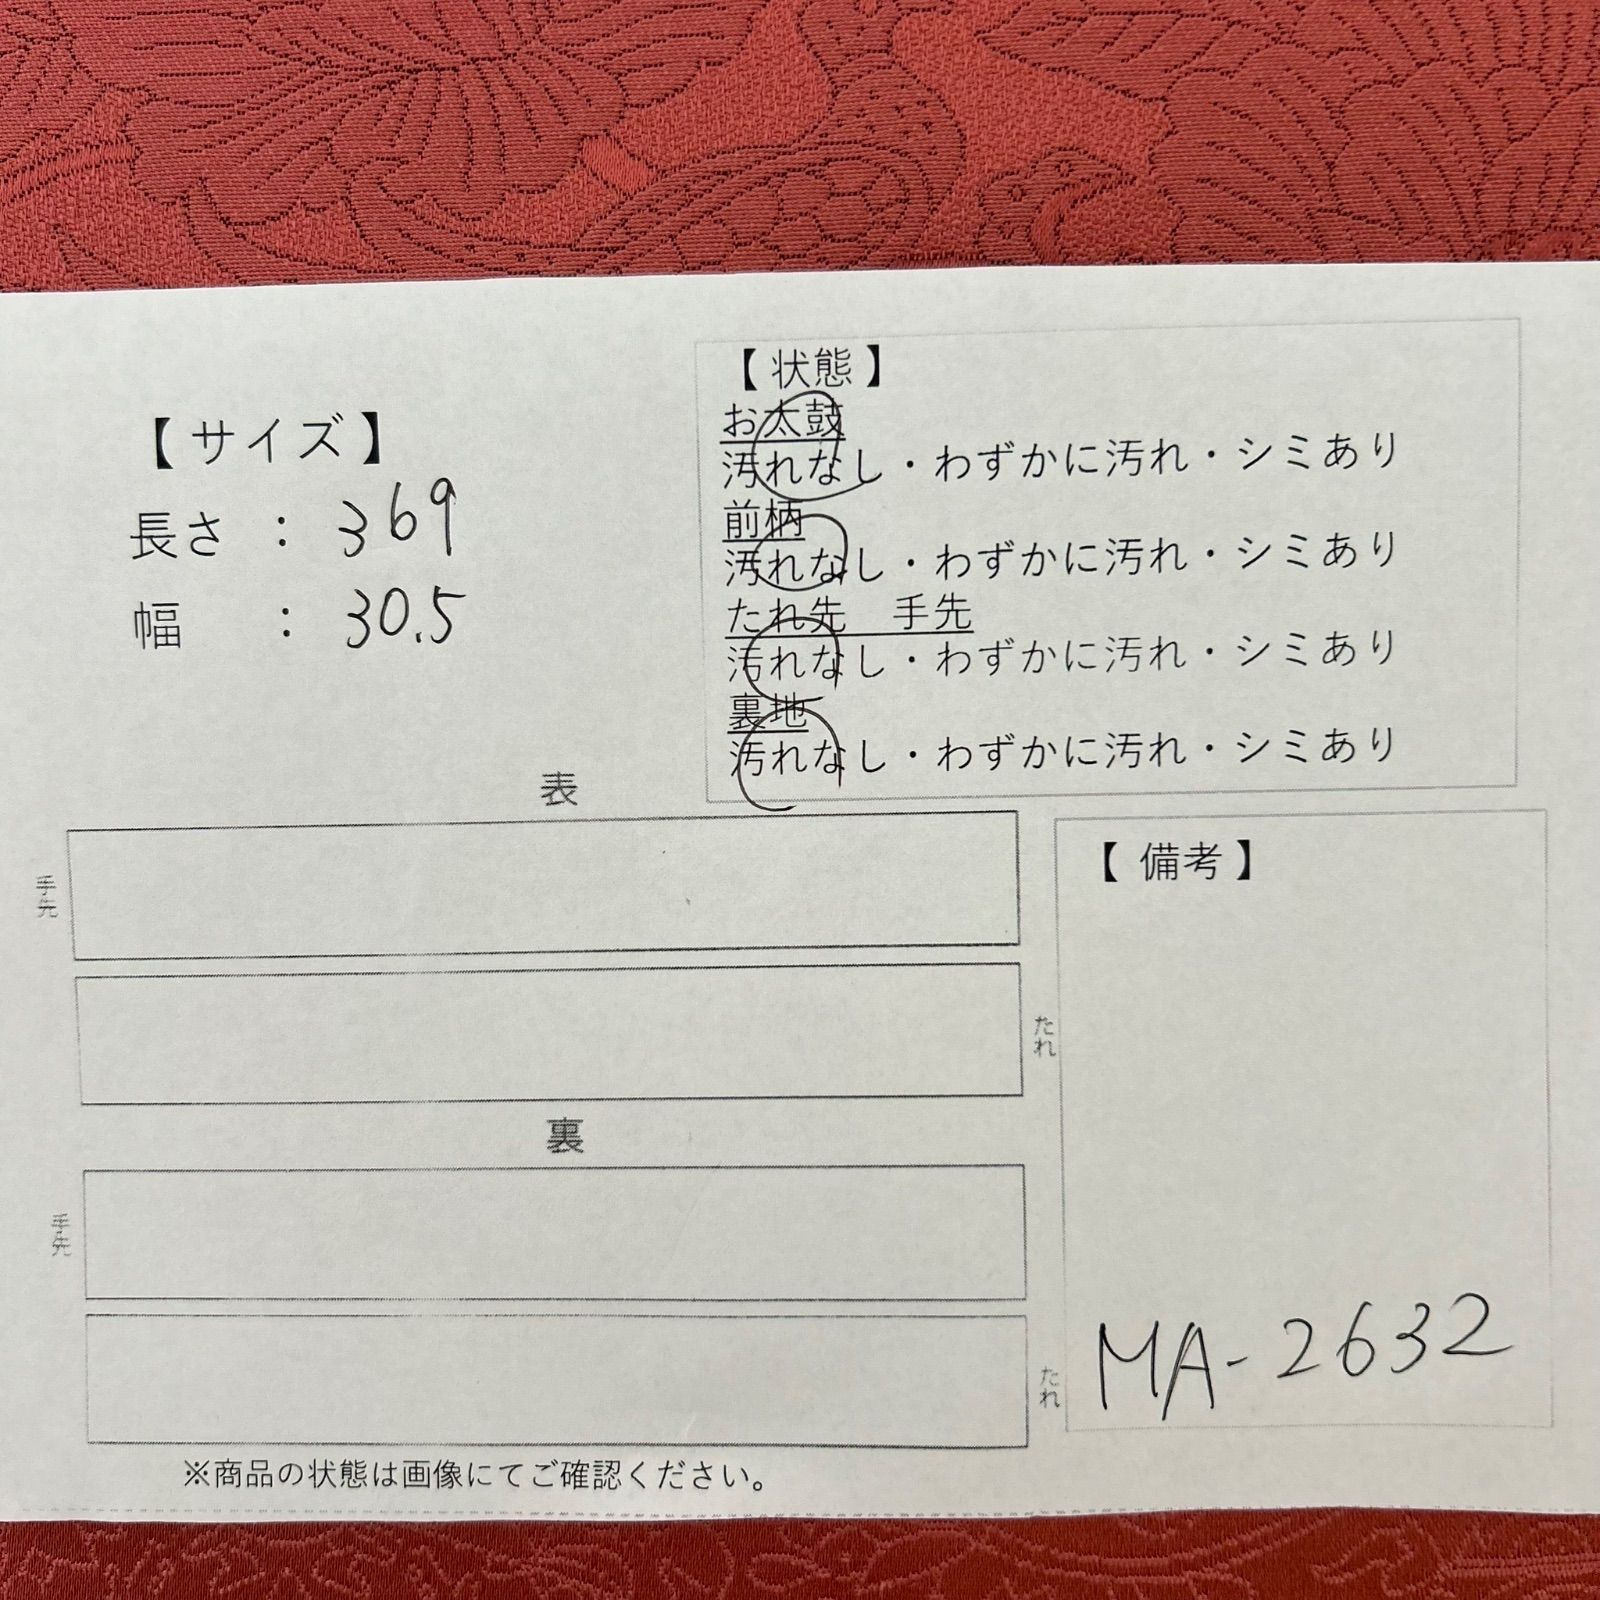 【サイズ】
長さ : 369
幅 : 30.5
【状態】
お太鼓
汚れなし・わずかに汚れ・シミあり
前柄
汚れなし・わずかに汚れ・シミあり
たれ先 手先
汚れなし・わずかに汚れ・シミあり
裏地
汚れなし・わずかに汚れ・シミあり
表
手先
たれ
裏
手先
たれ
【備考】
MA-2632
※商品の状態は画像にてご確認ください。